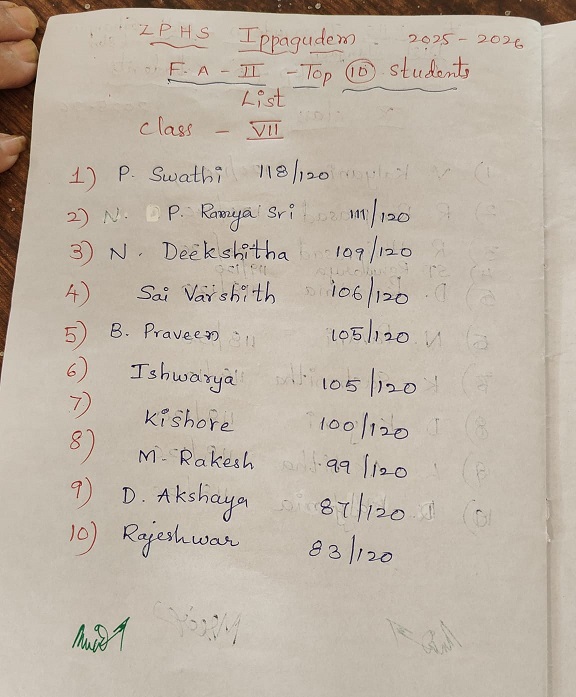 ZPHS Ippagudem 2025-2026
F.A - II - Top 10 Students
List
Class - VII
1) P. Swathi 118/120
2) N. P. Ramya Sri 111/120
3) N. Deekshitha 109/120
4) Sai Varshith 106/120
5) B. Praveen 105/120
6) Ishwarya 105/120
7) Kishore 100/120
8) M. Rakesh 99/120
9) D. Akshaya 87/120
10) Rajeshwar 83/120